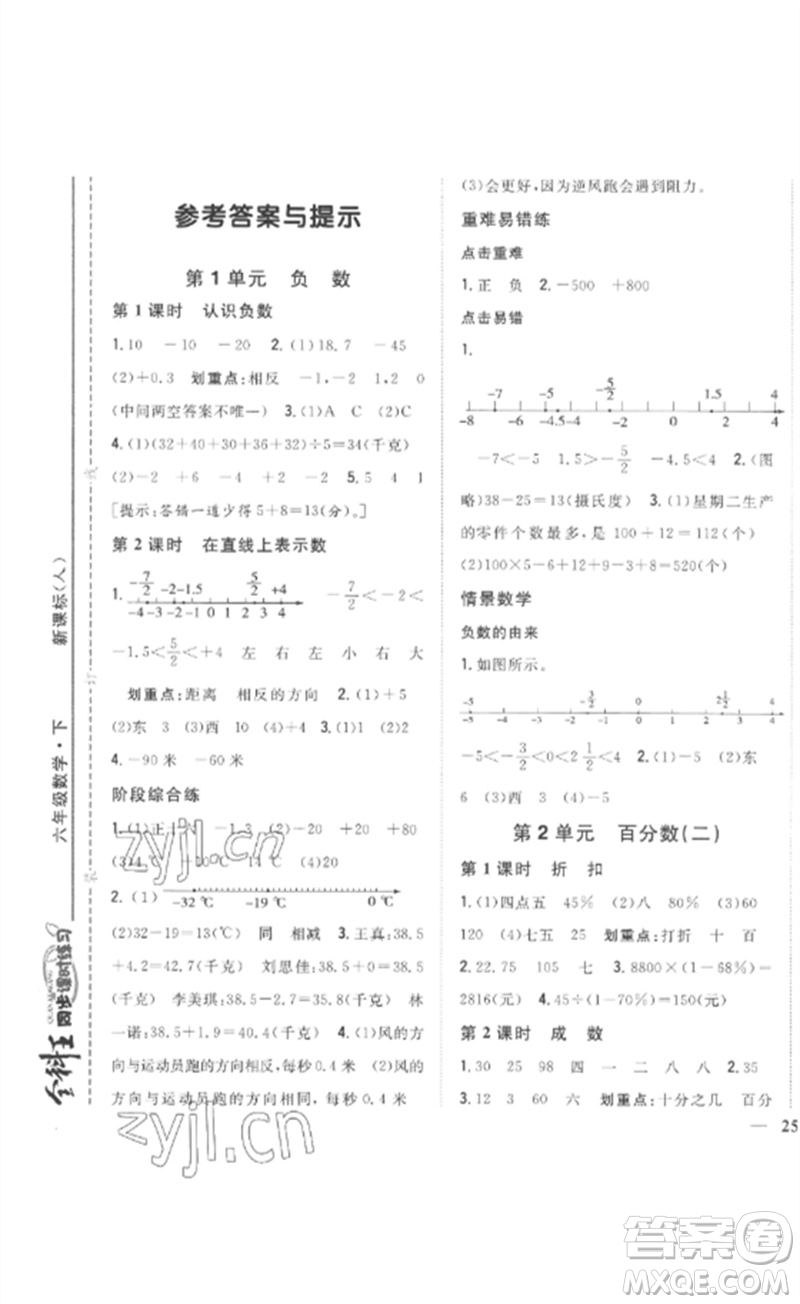 参考答案与提示
第1单元 负 数
第1课时 认识负数
1.10 －10 －20 2.(1)18.7 －45
(2)＋0.3 划重点:相反 －1,－2 1,2 0
(中间两空答案不唯一) 3.(1)A C (2)C
4.(1)(32＋40＋30＋36＋32)÷5＝34(千克)
(2)－2 ＋6 －4 －2 5.5 4 1
[提示:答错一道少得5＋8＝13(分)。]
第2课时 在直线上表示数
1. －7/2 －2 －1.5 5/2 ＋4
－4 －3 －2 －1 0 1 2 3 4
－7/2＜－2＜
－1.5＜5/2＜＋4 左 右 左 小 右 大
划重点:距离 相反的方向 2.(1)＋5
(2)东 3 (3)西 10 (4)0 3.(1)2 (2)2
4.－90米 －60米
阶段综合练
1.(1)正 －1.3 (2)－20 ＋20 ＋80
(3)14℃ －10℃ (4)20
2.(1) －32℃ －19℃ 0℃
(2)32－19＝13(℃) 同 相减 3.王真:38.5
＋4.2＝42.7(千克) 刘思佳:38.5－2.5＝36
(千克) 李美琪:38.5＋0＝38.5(千克) 林
一诺:38.5＋1.9＝40.4(千克) 4.(1)风的方
向与运动员跑的方向相反,每秒0.4米 (2)风的
方向与运动员跑的方向相同,每秒0.4米
(3)会更好,因为逆风跑会遇到阻力。
重难易错练
点击重难
1.正 负 2.－500 ＋800
点击易错
1.
－7 －5 －5/2 1.5 4
－8 －6 －4.5 －4 －2 0 2 4
－7＜－5 1.5＞－5/2 －4.5＜4 2.(图
略)38－25＝13(摄氏度) 3.(1)星期二生产
的零件个数最多,是100＋12＝112(个)
(2)100×5－6＋12＋9－3＋8＝520(个)
情景数学
负数的由来
1.如图所示。
－5 －3/2 0 2 1/2 4
－5 －4 －3 －2 －1 0 1 2 3 4 5
－5＜－3/2＜0＜2 1/2＜4 2.(1)－5 (2)东
6 (3)西 3 (4)－5
第2单元 百分数(二)
第1课时 折 扣
1.(1)四点五 45% (2)八 80% (3)60
120 (4)七五 25 划重点:打折 十 百
2.22.75 105 70 3.8800×(1－68%)＝
2816(元) 4.60÷(1－60%)＝150(元)
第2课时 成 数
1.30 25 98 四 一 二 八 八 2.35
3.12 3 60 六 划重点:十分之几 百分
— 25
新课标(人)
六年级数学·下
全科王
同步课时练习
线
订
装
zyjl.cn
zyjl.cn
答案圈
MXQE.COM